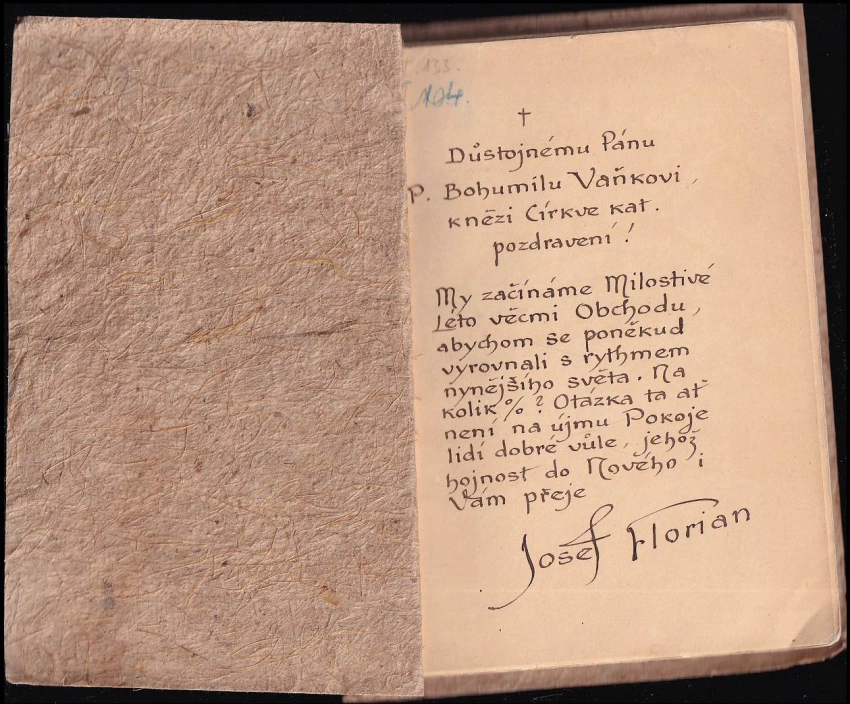 133.
104.
†
Důstojnému Pánu
P. Bohumilu Vaňkovi,
knězi Církve kat.
pozdravení!
My začínáme Milostivé
Léto věcmi Obchodu,
abychom se poněkud
vyrovnali s rythmem
nynějšího světa. Na
kolik %? Otázka ta ať
není na újmu Pokoje
lidí dobré vůle, jehož
hojnost do Nového i
Vám přeje
Josef Florian